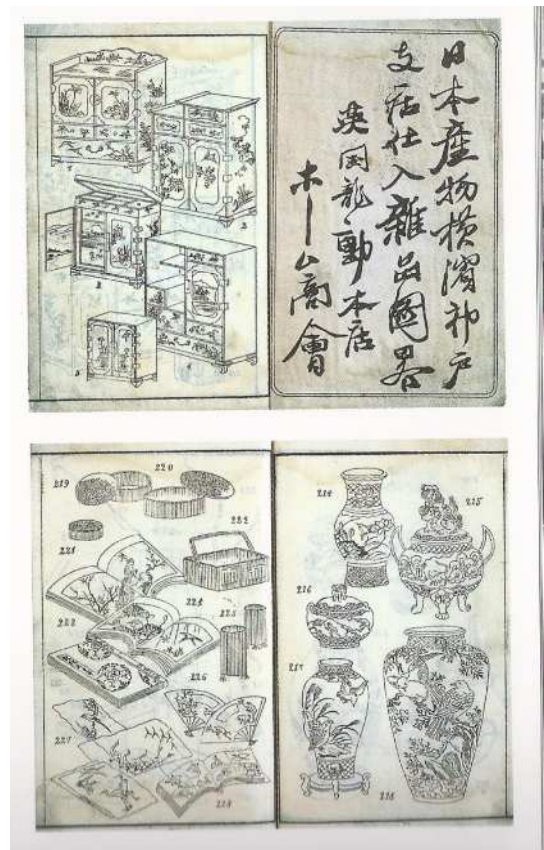 日本産物横濱神戸
支店仕入雑品圖畧
英国龍動本店
ホーム商會
1
2
3
4
5
219
220
221
222
223
224
225
226
227
228
214
215
216
217
218